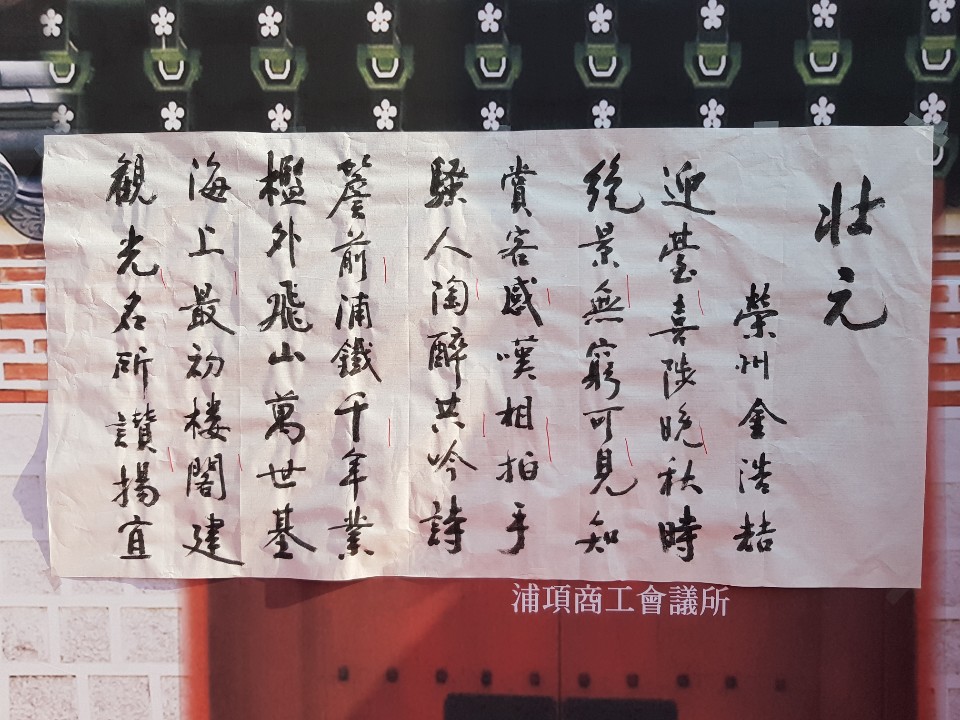 壯元
榮州金浩喆
迎臺喜陟晚秋時
絶景無窮可見知
賞客感嘆相拍手
騷人陶醉共吟詩
簷前浦鐵千年業
檻外飛山萬世基
海上最初楼閣建
観光名所讃揚宜
浦項商工會議所